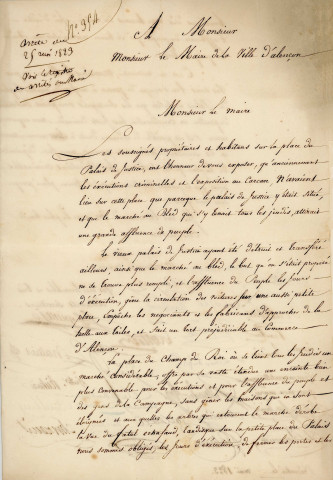 N.° 394
arrêté du
25 mai 1823
Voir le registre
A Monsieur
Monsieur le Maire de la Ville d'alençon
Monsieur le maire
Les soussignés propriétaires et habitans sur la place du
Palais de Justice, ont l'honneur de vous exposer, qu'anciennement
les exécutions criminelles et l'exposition au Carcan n'avaient
lieu sur cette place que parceque le palais de Justice y était situé,
et que le marché au Bled qui s'y tenait tous les jeudis, attirait
une grande affluence de peuple.
Le vieux palais de Justice ayant été détruit et transféré
ailleurs, ainsi que le marché au Bled, le but qu'on s'était proposé
ne se trouve plus rempli, et l'affluence du Peuple les jours
d'exécution, gêne la circulation des voitures par une aussi petite
place, empêche les négociants et les fabricants d'approcher de la
halle aux toiles, et fait un tort préjudiciable au Commerce
d'Alençon.
La place du Champ du Roi où se tient tous les Jeudis un
marché considérable, offre par sa vaste étendue une enceinte bien
plus convenable pour les exécutions et pour l'affluence du peuple et
des gens de la Campagne, sans gêner les maisons qui en sont
éloignées et aux quelles les arbres qui entourent le marché dérobe
la vue du fatal echafaud, tandis que sur la petite place du Palais
nous sommes obligés les jours d'exécution, de fermer les portes et les